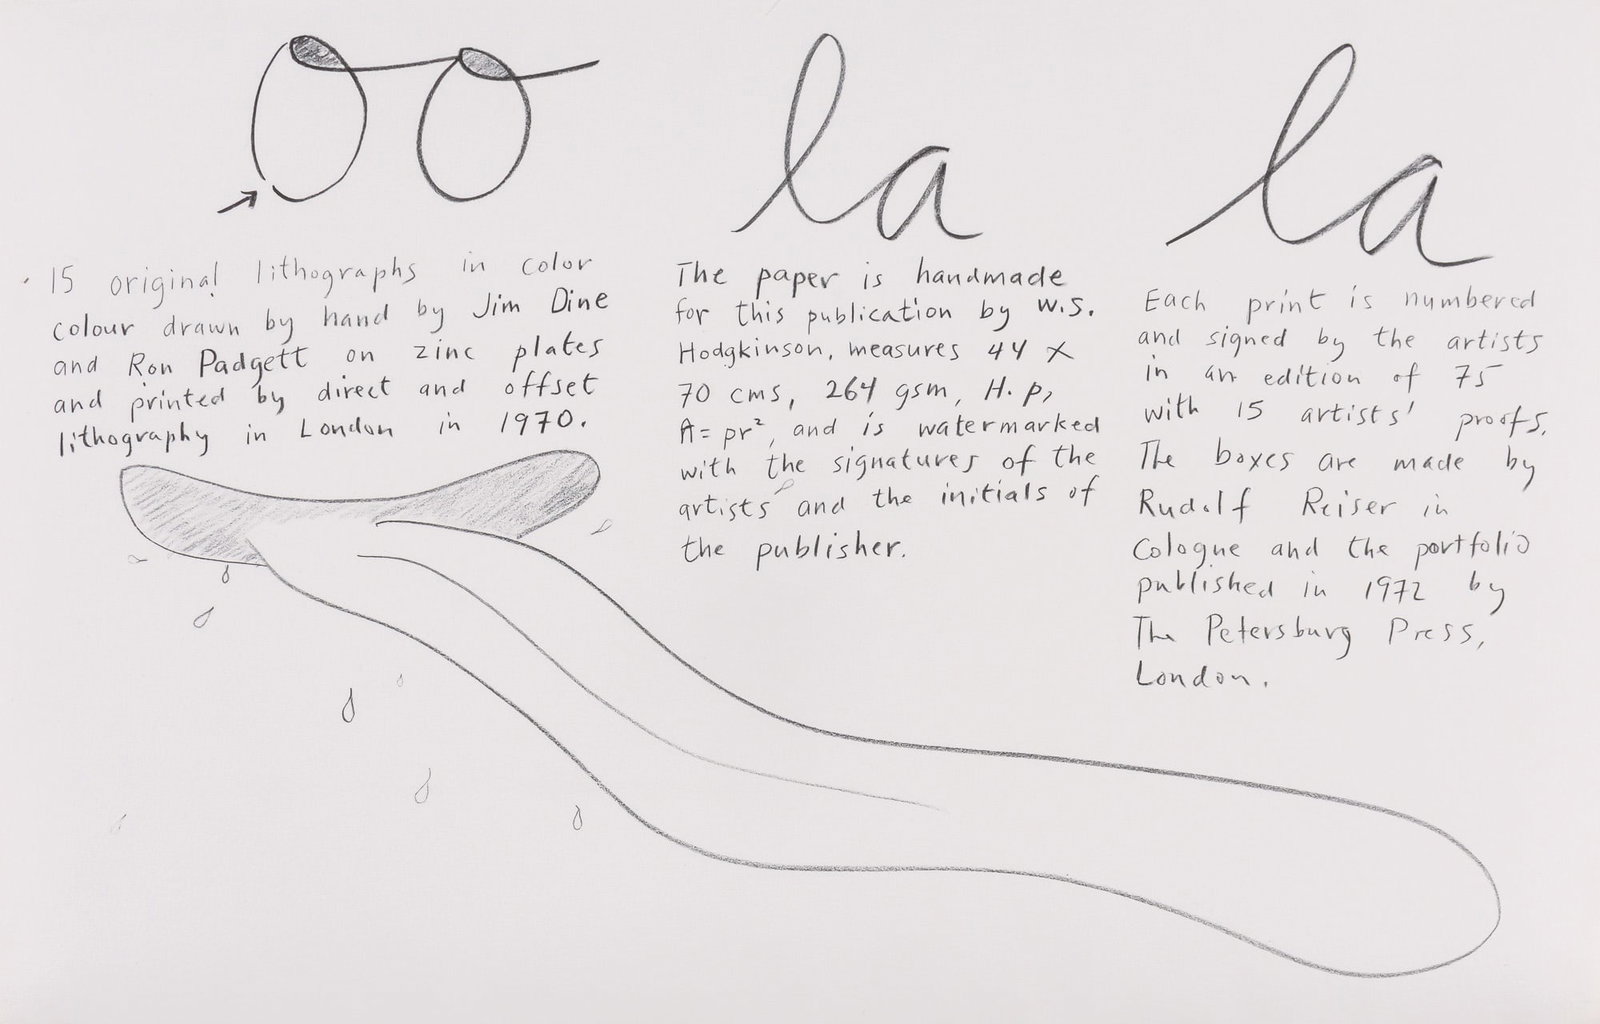 oo la la
15 original lithographs in color
colour drawn by hand by Jim Dine
and Ron Padgett on zinc plates
and printed by direct and offset
lithography in London in 1970.
The paper is handmade
for this publication by W.S.
Hodgkinson, measures 44 x
70 cms, 264 gsm, H.p,
A=pr², and is watermarked
with the signatures of the
artists and the initials of
the publisher.
Each print is numbered
and signed by the artists
in an edition of 75
with 15 artists' proofs.
The boxes are made by
Rudolf Reiser in
Cologne and the portfolio
published in 1972 by
The Petersburg Press,
London.